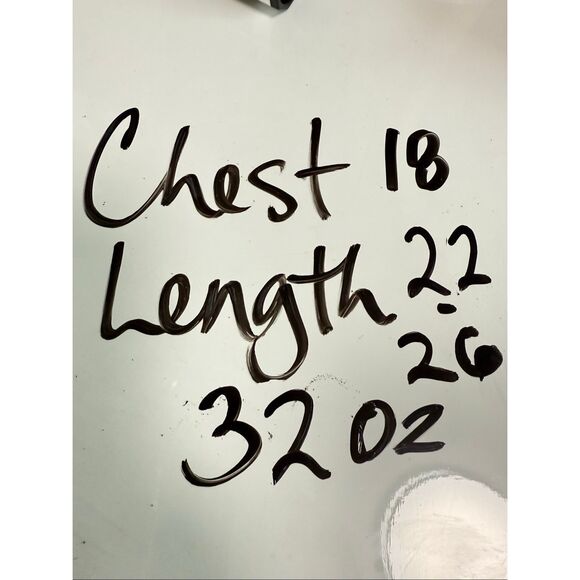 Chest 18
Length 22
-
26
32 oz